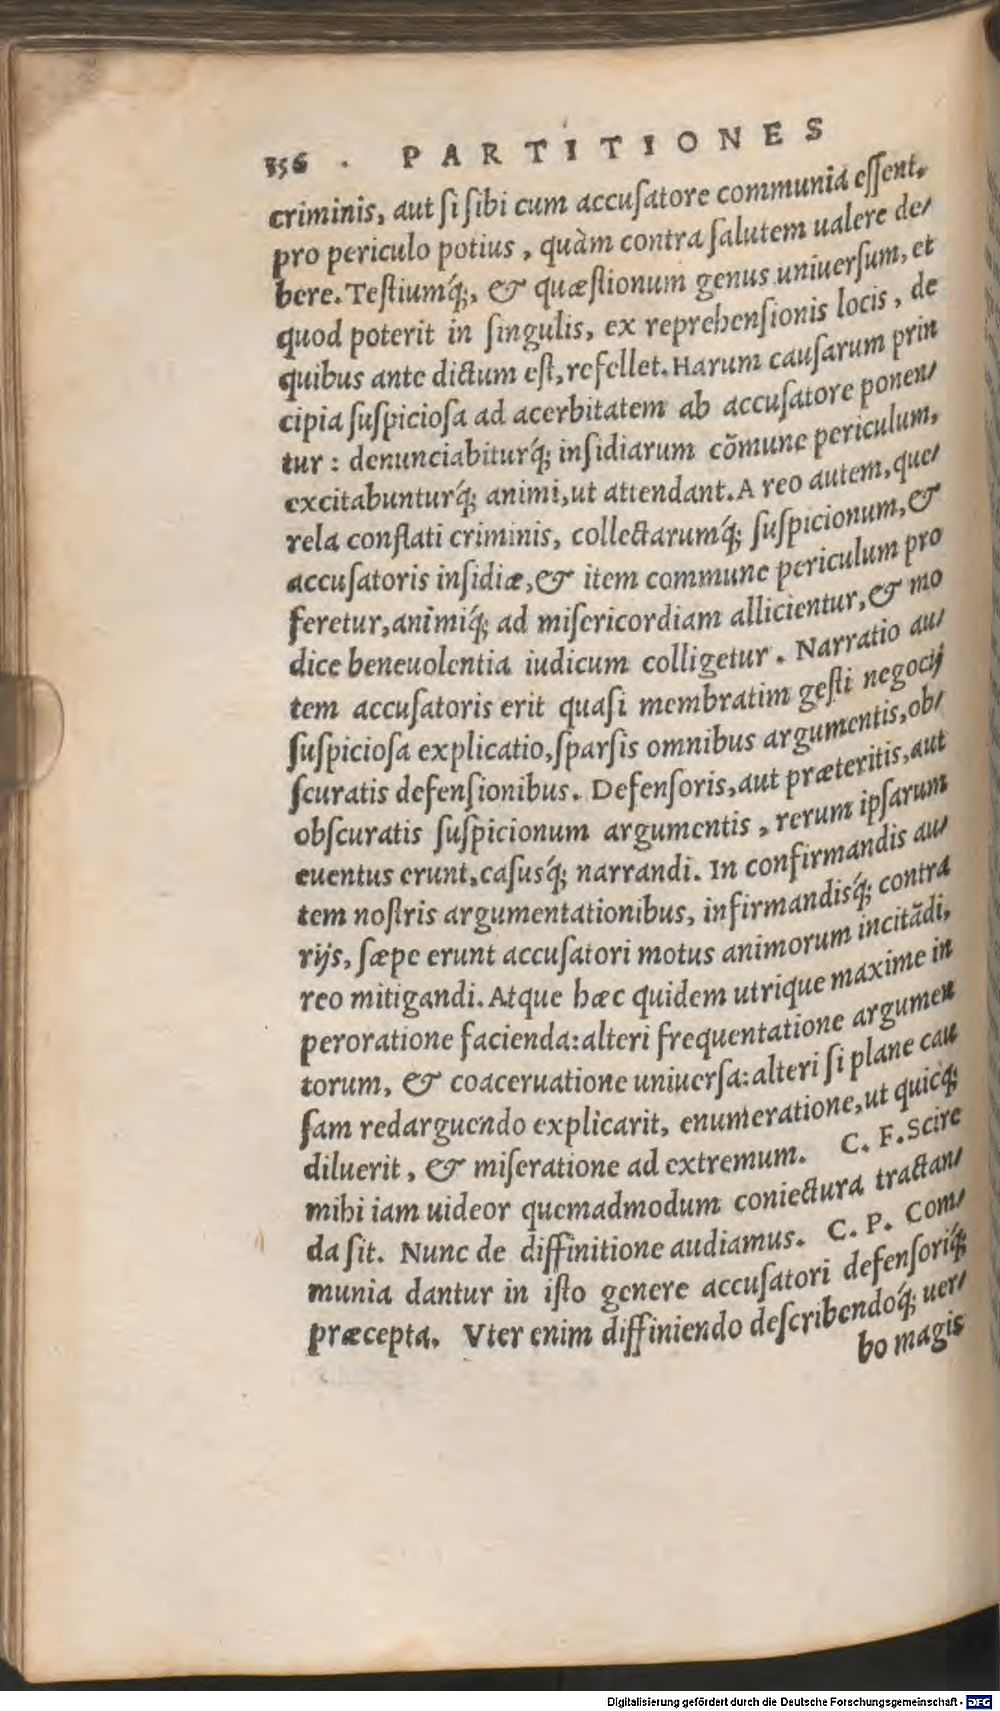 356 . PARTITIONES
criminis, aut ſi ſibi cum accuſatore communia eſſent,
pro periculo potius, quàm contra ſalutem ualere de/
bere. Teſtiumq́;, & quæſtionum genus uniuerſum, et
quod poterit in ſingulis, ex reprehenſionis locis, de
quibus ante dictum eſt, refellet. Harum cauſarum prin
cipia ſuſpicioſa ad acerbitatem ab accuſatore ponen/
tur: denunciabiturq́; inſidiarum cõmune periculum,
excitabunturq́; animi, ut attendant. A reo autem, que/
rela conflati criminis, collectarumq́; ſuſpicionum, &
accuſatoris inſidiæ, & item commune periculum pro
feretur, animiq́; ad miſericordiam allicientur, & mo
dice beneuolentia iudicum colligetur. Narratio au/
tem accuſatoris erit quaſi membratim geſti negocij
ſuſpicioſa explicatio, ſparſis omnibus argumentis, ob/
ſcuratis defenſionibus. Defenſoris, aut præteritis, aut
obſcuratis ſuſpicionum argumentis, rerum ipſarum
euentus erunt, caſusq́; narrandi. In confirmandis au/
tem noſtris argumentationibus, infirmandisq́; contra
rijs, ſæpe erunt accuſatori motus animorum incitãdi,
reo mitigandi. Atque hæc quidem utrique maxime in
peroratione facienda: alteri frequentatione argumen
torum, & coaceruatione uniuerſa: alteri ſi plane cau
ſam redarguendo explicarit, enumeratione, ut quicq;
diluerit, & miſeratione ad extremum. C. F. Scire
mihi iam uideor quemadmodum coniectura tractan/
da ſit. Nunc de diffinitione audiamus. C. P. Com/
munia dantur in iſto genere accuſatori defenſoriq́;
præcepta. Vter enim diffiniendo deſcribendoq́; uer/
bo magis
Digitalisierung gefördert durch die Deutsche Forschungsgemeinschaft - DFG